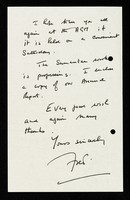 I like to see you all
again at the BCM if
it is held on a convenient
Saturday.
The Seminar work
is progressing. I enclose
a copy of our Annual
Report.
Every good wish
and again many
thanks.
Yours sincerely